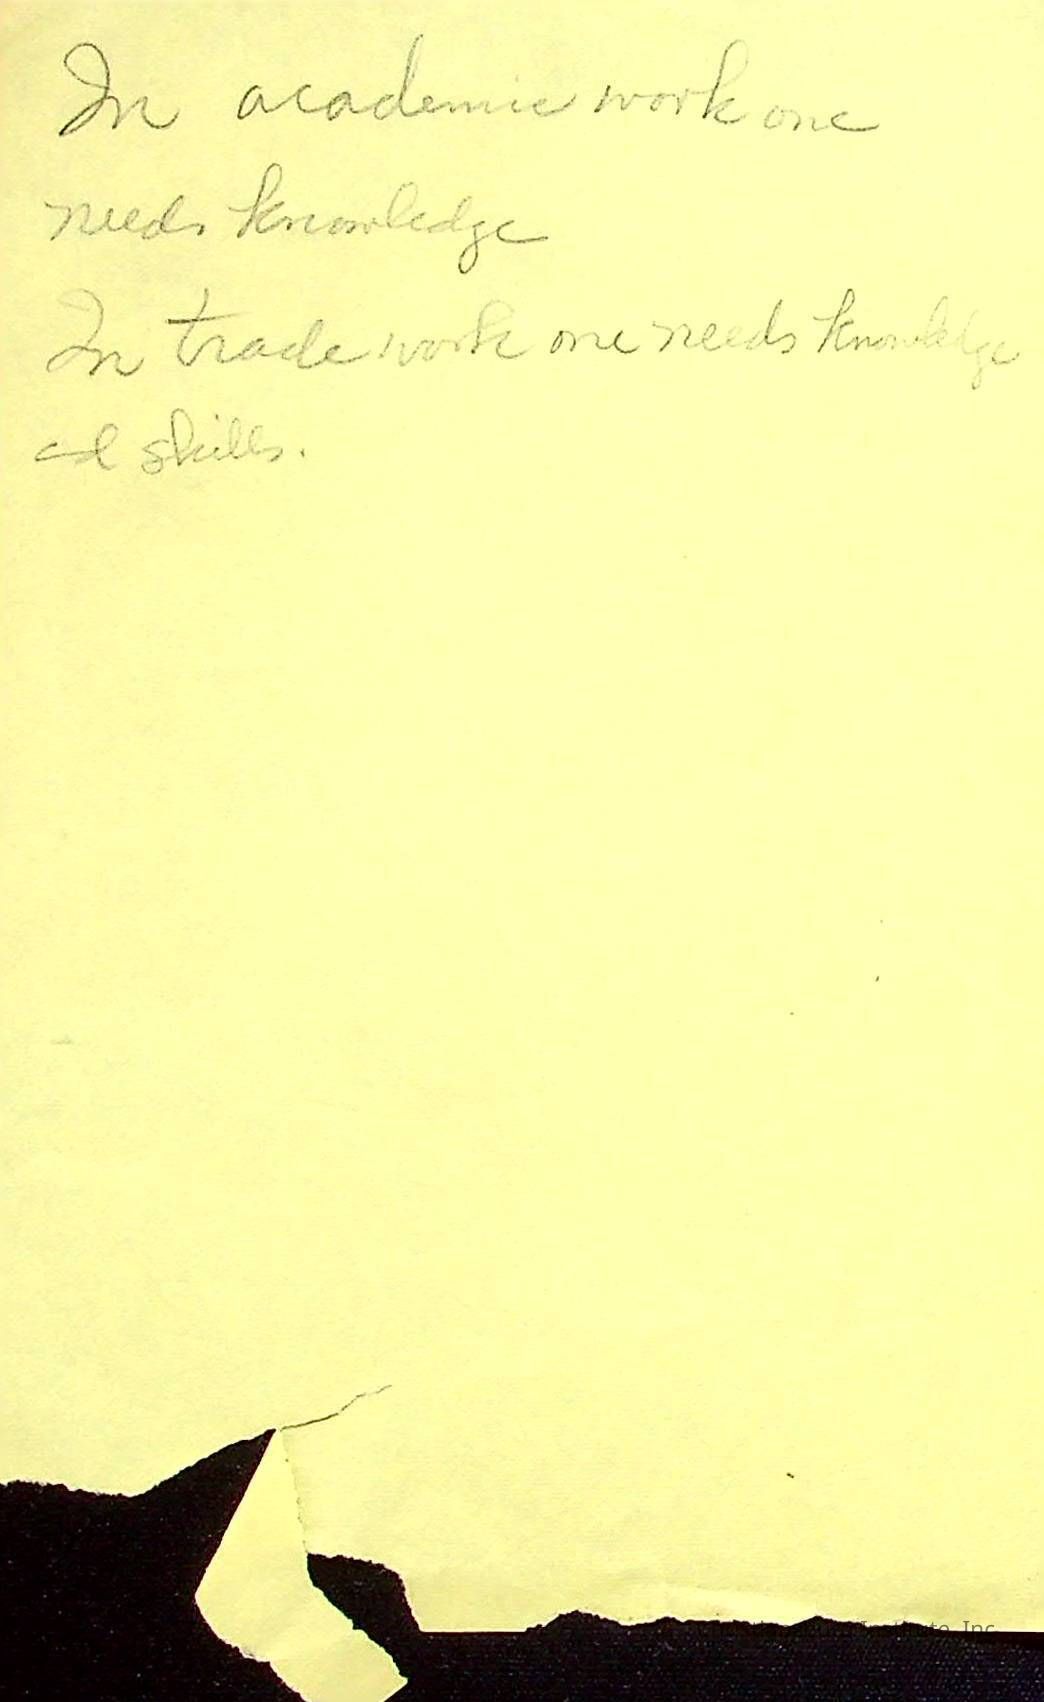 In academic work one
needs knowledge
In trade work one needs knowledge
ad skills.
Institute, Inc.